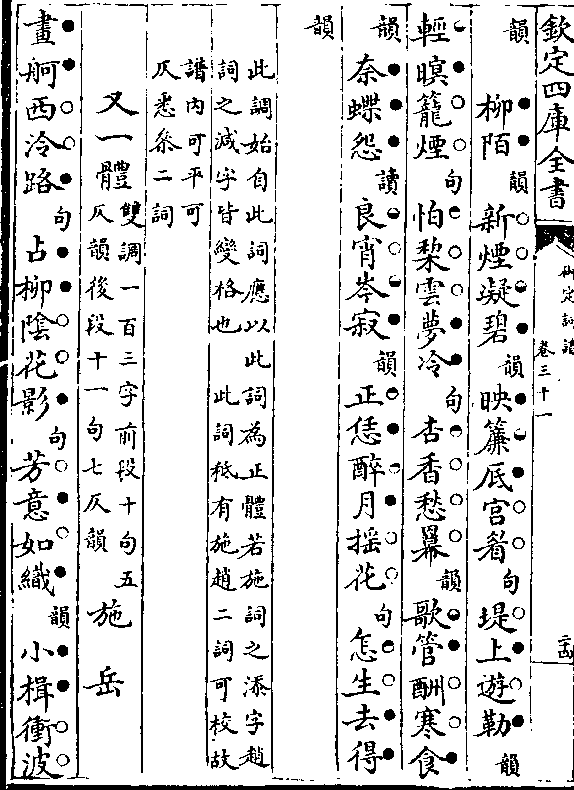 欽定四庫全書
御定詞譜
卷三十一
二四
韻 柳陌韻新煙凝碧韻映簾底宮眉句堤上遊勒韻
輕暝籠煙句怕棃雲夢冷句杏香愁羃韻歌管酬寒食
韻奈蝶怨讀良宵岑寂韻正恁醉月搖花句怎生去得
韻
此調始自此詞應以此詞為正體若施詞之添字趙
詞之減字皆變格也 此詞秪有施趙二詞可校故
譜內可平可
仄悉叅二詞
又一體雙調一百三字前段十句五
仄韻後段十一句七仄韻 施岳
畫舸西泠路句占柳陰花影句芳意如織韻小楫衝波